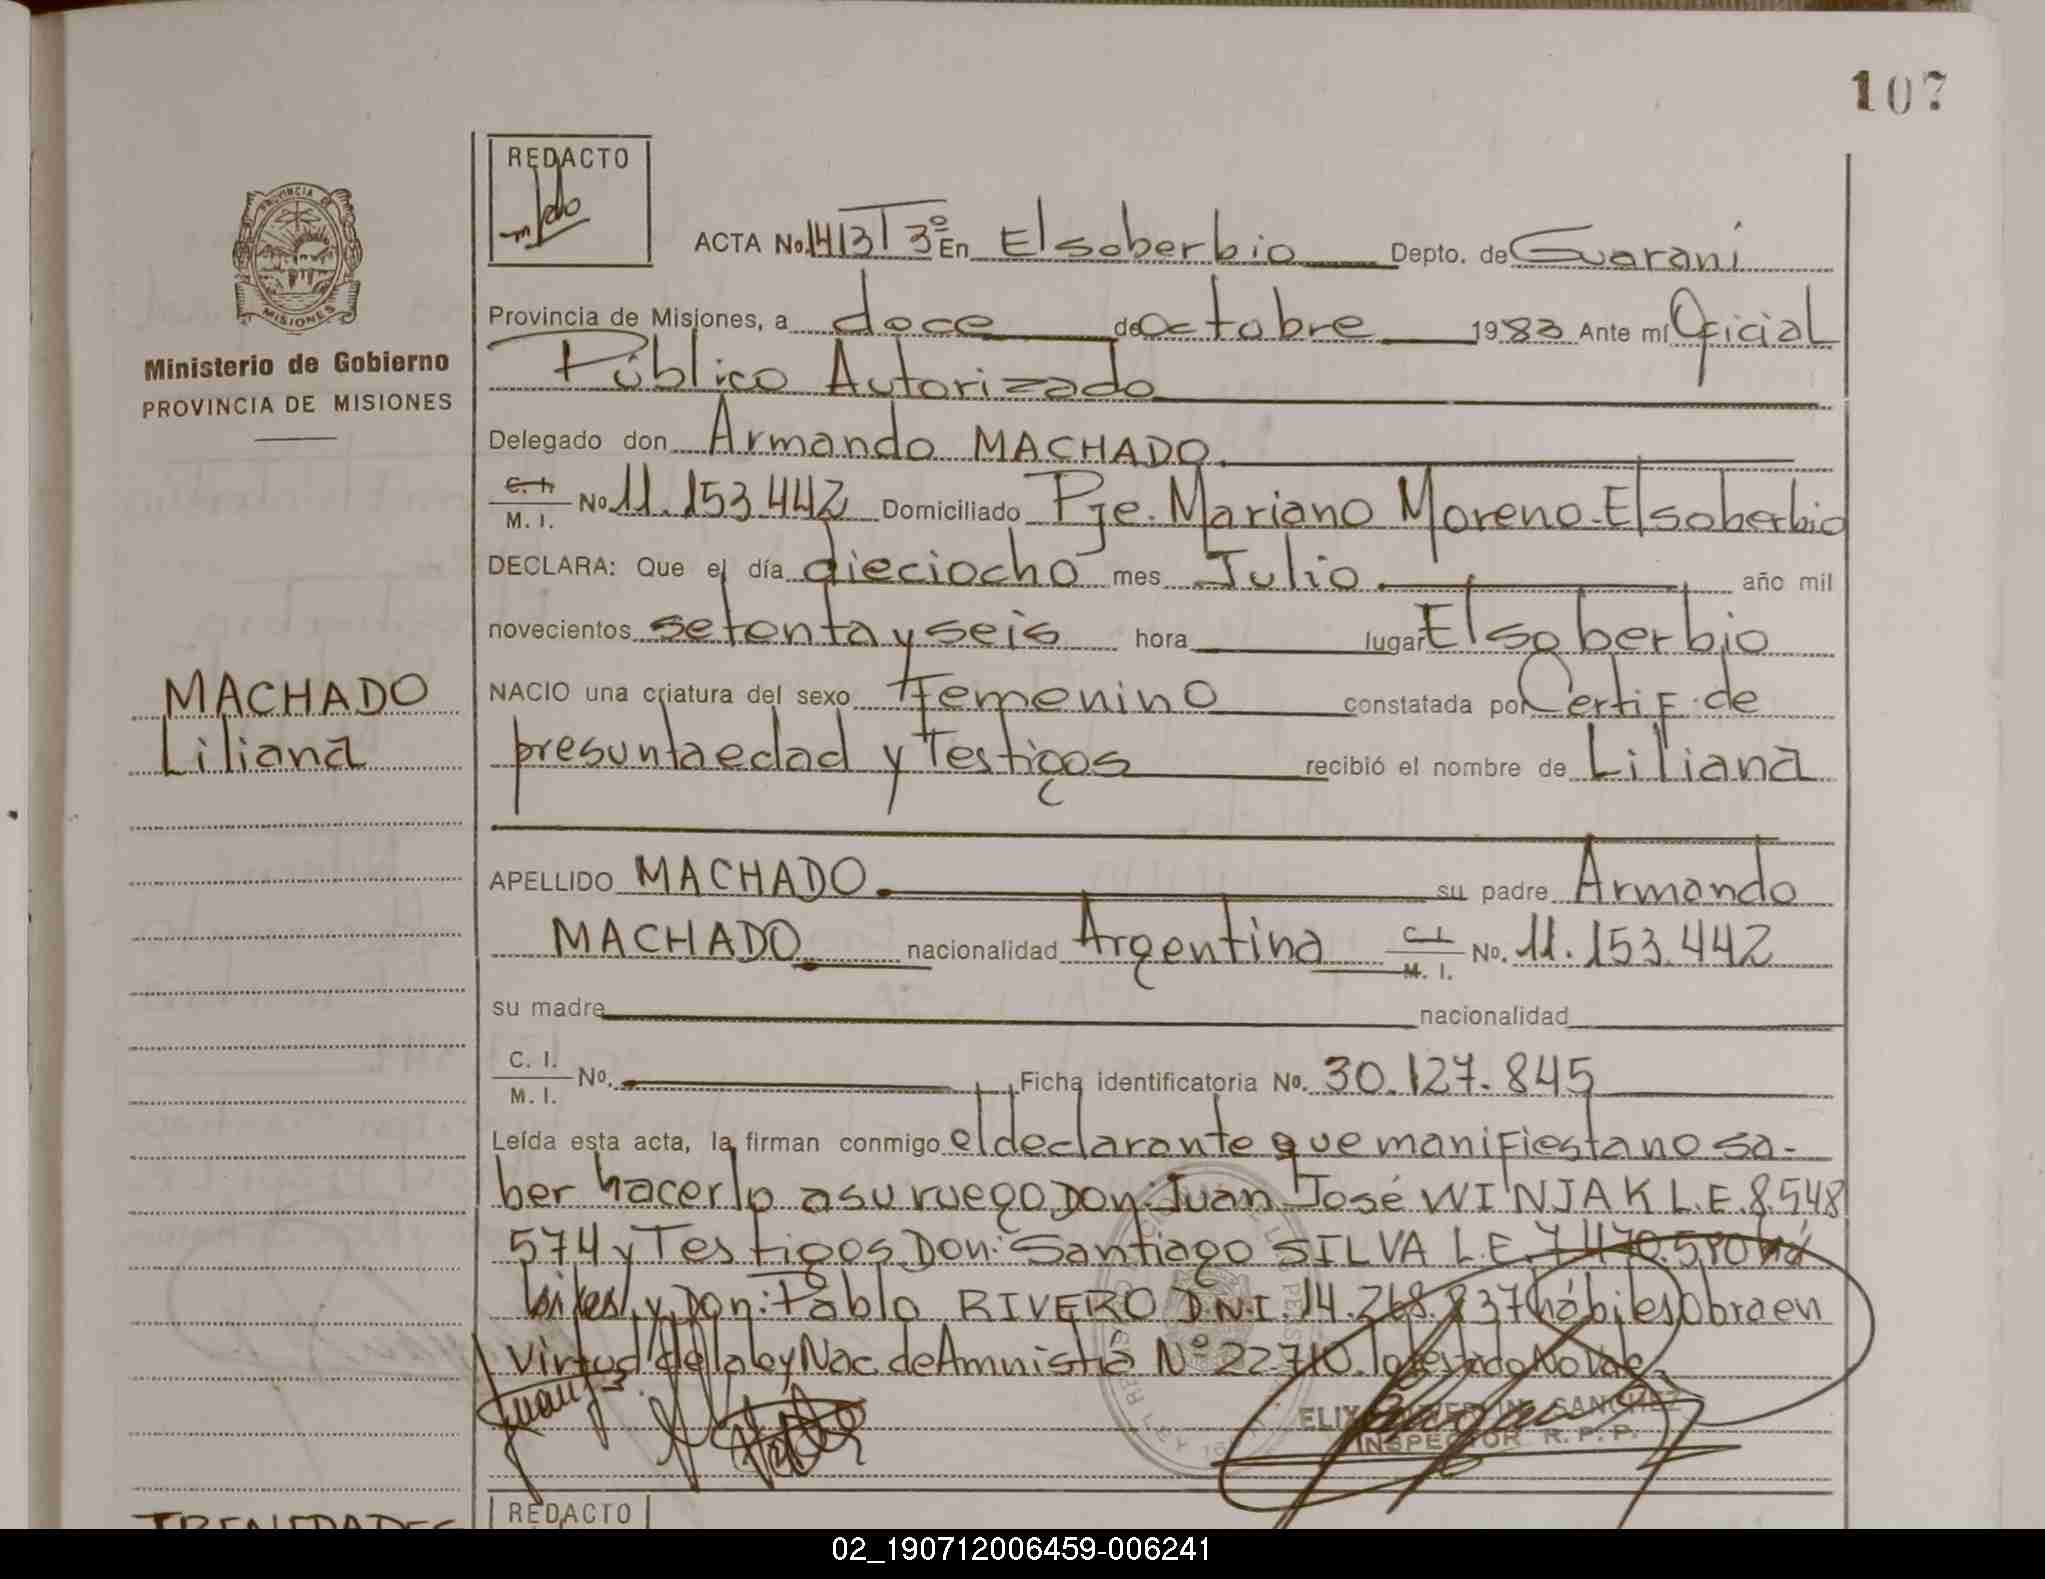 107
REDACTO
PROVINCIA DE
MISIONES
ACTA No. 1413 T 3º En El soberbio Depto. de Guarani
Provincia de Misiones, a doce de Octubre 1983 Ante mí Oficial
Ministerio de Gobierno
PROVINCIA DE MISIONES
Público Autorizado
Delegado don Armando MACHADO
C. I. M. I. No 11.153.442 Domiciliado Pje. Mariano Moreno-El soberbio
DECLARA: Que el día dieciocho mes Julio año mil
novecientos setenta y seis hora lugar El soberbio
MACHADO
Liliana
NACIO una criatura del sexo Femenino constatada por Certif. de
presunta edad y Testigos recibió el nombre de Liliana
APELLIDO MACHADO su padre Armando
MACHADO nacionalidad Argentina C. I. M. I. No. 11.153.442
su madre nacionalidad
C. I. M. I. No. Ficha identificatoria No. 30.127.845
Leída esta acta, la firman conmigo el declarante que manifiesta no sa-
ber hacerlo a su ruego Don: Juan José WINJAK L.E. 8.548
574 y Testigos Don: Santiago SILVA L.E. 7.470.590 há
biles y Don: Pablo RIVERO D.N.I. 14.268.837 hábiles Obra en
virtud de la ley Nac. de Amnistia Nº 22.710. lo testado No Vale
SANCHEZ
INSPECTOR R. P. P.
REDACTO
02_190712006459-006241